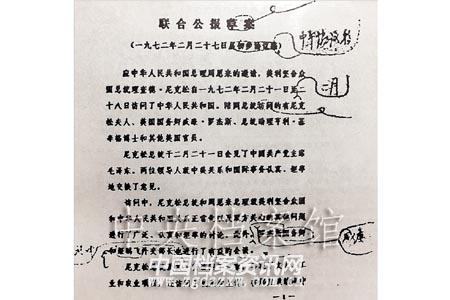 联合公报草案
(一九七二年二月二十七日
应中华人民共和国总理周恩来的邀请,美利坚合众
国总统理查德·尼克松自一九七二年二月二十一日至二
十八日访问了中华人民共和国。陪同总统访问的有尼克
松夫人、美国国务卿威廉·罗杰斯、总统助理亨利·基
辛格博士和其他美国官员。
尼克松总统于二月二十一日会见了中国共产党主席
毛泽东。两位领导人就中美关系和国际事务认真、坦率
地交换了意见。
访问中,尼克松总统和周恩来总理就美利坚合众国
和中华人民共和国关系正常化以及双方关心的其他问题
进行了广泛、认真和坦率的讨论。此外,
和姬鹏飞外交部长也进行了
尼克松总统
业和农业项目。
二月
中央档案馆
中国档案资讯网
www.zgdazxw.com.cn